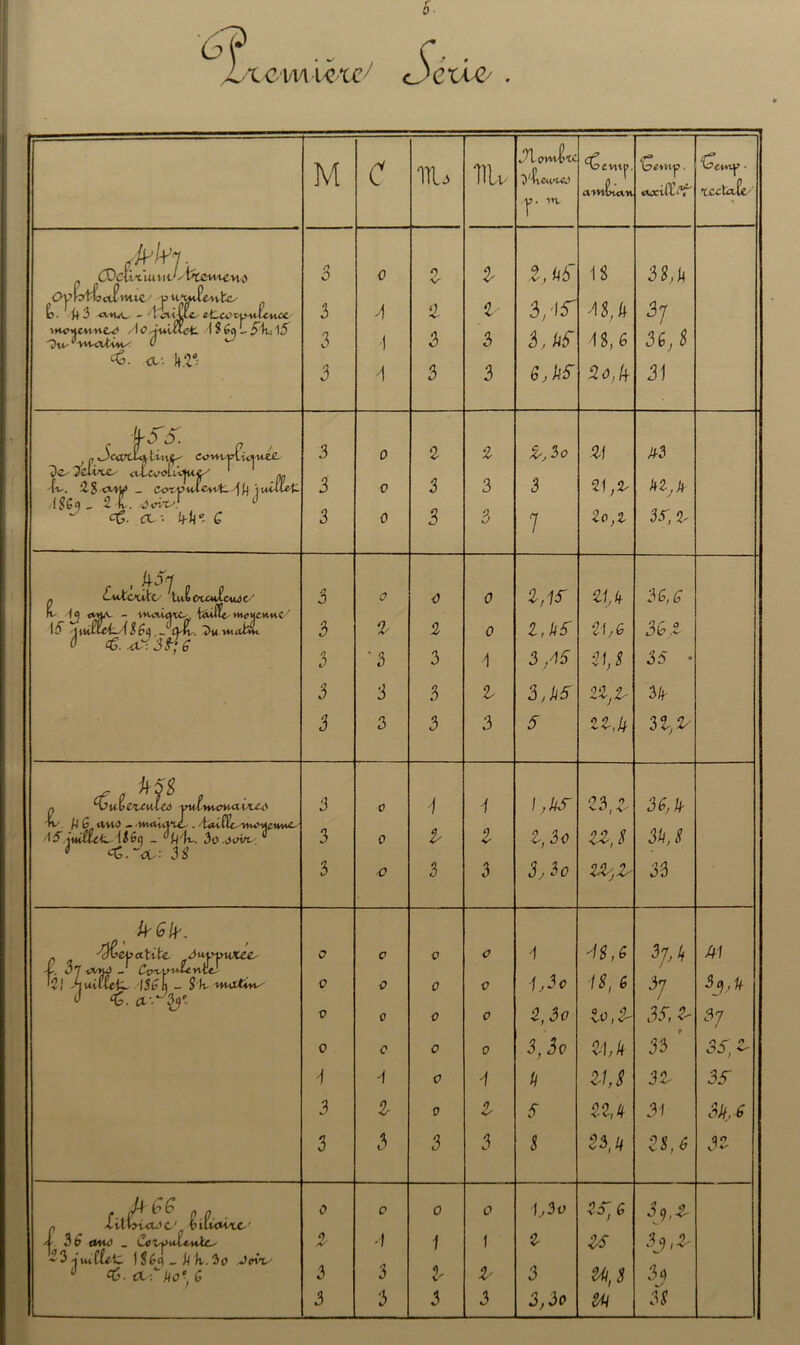 6.
Première Série.
M C Ms Mi Nombre d'heures p. m. Temp. ambian. Temp. axill.re Temp. rectale
447.
Delirium Tremens
Ophthalmie purulente
h. 43 ans - Taille et corpulence
moyennes 10 juillet 1869 - 5h,15
Du matin.
T. a. 42°.
3 0 2 2 2,45 18 38,4
3 1 2 2 3,15 18,4 37
3 1 3 3 3,45 18,6 36,8
3 1 3 3 6,45 20,4 31
455.
Scarlating compliquée
De Delire alcoolique
h. 28 ans - corpulent 14 juillet
1869 - 2 h. soir.
T. a. 44° 6
3 0 2 2 2,30 21 43
3 0 3 3 3 21,2 42,4
3 0 3 3 7 20,2 35,2
457
Enterite tuberculeuse
h. 19 ans - maigre, taille moyenne
15 juillet 1869. - 9h. Du matin
T. a. 38°, 6
3 0 0 0 2,15 21,4 36,6
3 2 2 0 2,45 21,6 36,2
3 3 3 1 3,15 21,8 35
3 3 3 2 3,45 22,2 34
3 3 3 3 5 22,4 32,2
458
Tubercules pulmonaires
h. 46 ans - maigre. taille moyenne
15 juillet 1869 - 4h. 30 soir.
T. a. 38
3 0 1 1 1,45 23,2 36,4
3 0 2 2 2,30 22,8 34,8
3 0 3 3 3,30 22,2 33
464.
Hepatite suppurée
f. 37 ans - Corpulente
21 juillet 1869 - 8 h. matin
T. a. 39°.
0 0 0 0 1 18,6 37,4 41
0 0 0 0 1,30 18,6 37 39,4
0 0 0 0 2,30 20,2 35,2 37
0 0 0 0 3,30 21,4 33 35,2
1 1 0 1 4 21,8 32 35
3 2 0 2 5 22,4 31 34,6
3 3 3 3 8 23,4 28,6 32
466
Lithiase biliaire
f. 36 ans - Corpulente
23 juillet 1869 - 4 h. 30 Soir
T. a. 40°, 6
0 0 0 0 1,30 25,6 39,2
2 1 1 1 2 25 39,2
3 3 2 2 3 24,8 39
3 3 3 3 3,30 24 38